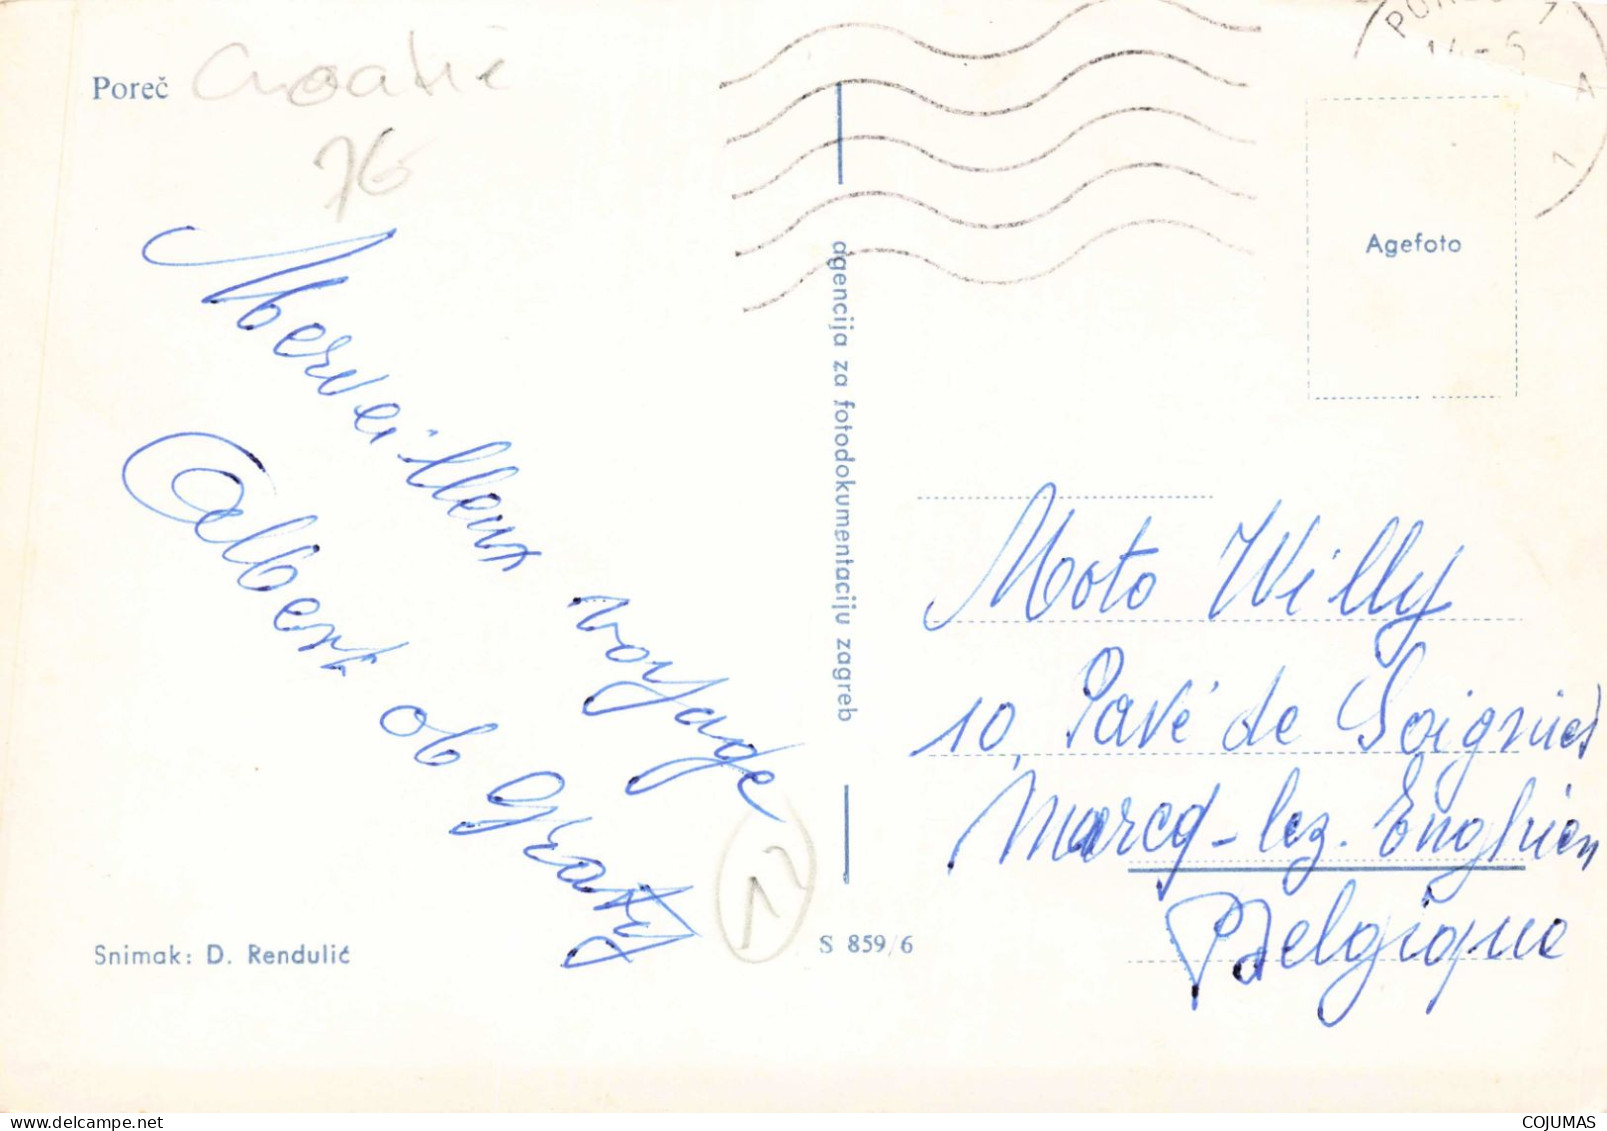 Poreč
Croatie
76
Merveilleux voyage
Albert ob Graty
Snimak: D. Rendulić
agencija za fotodokumentaciju zagreb
S 859/6
1
A
1
Agefoto
Moto Willy
10, Pavé de Soignies
Marcq-lez-Enghien
Belgique
COJUMAS